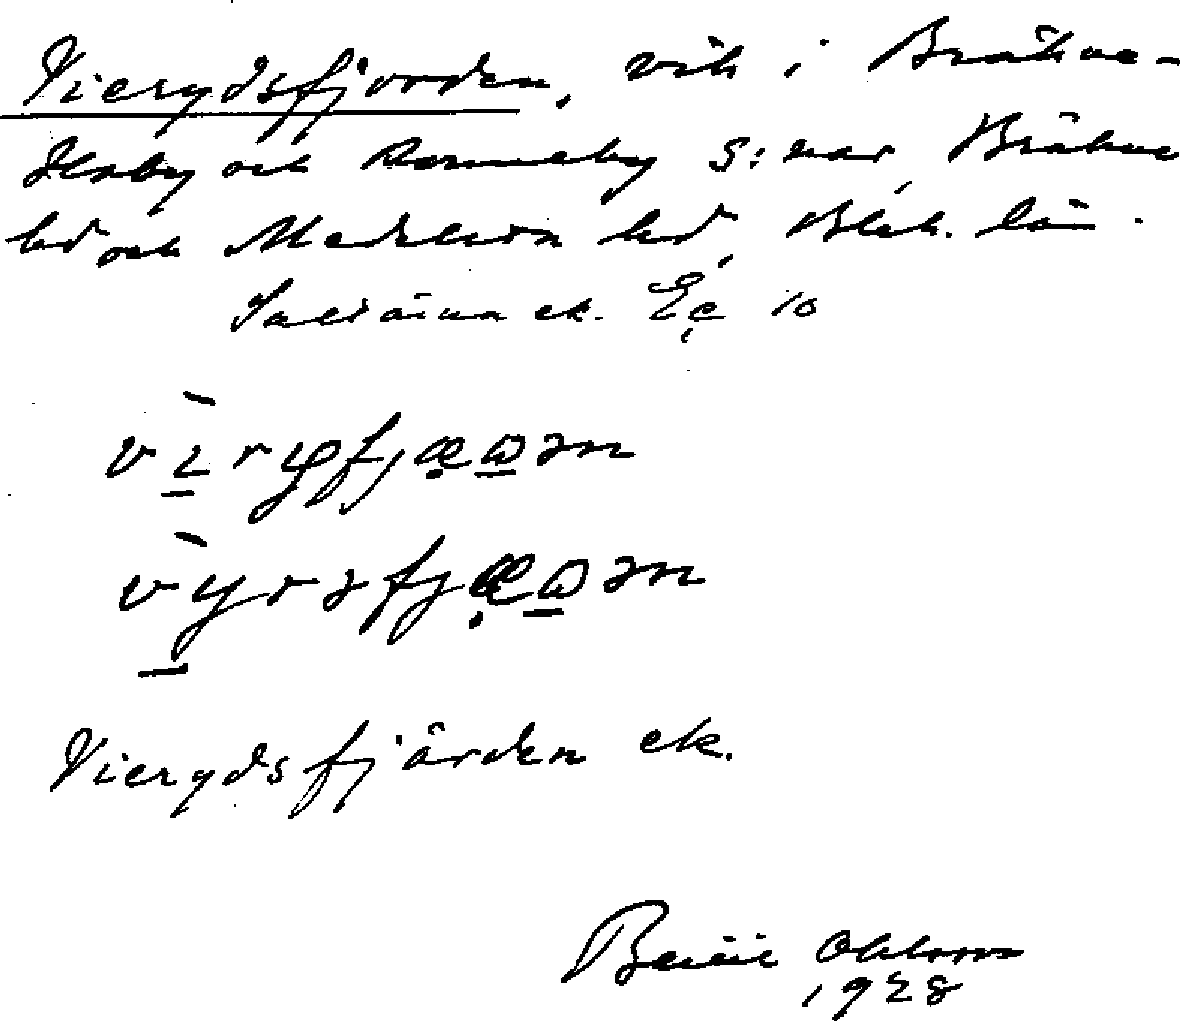 Vierydsfjorden, vik i Bräkne-
Hoby och Ronneby s:nar Bräkne
hd och Medelsta hd, Blek. län.
Saltärna ek. Ec 10
Vierydsfjärden ek.
Bertil Ohlsson
1928